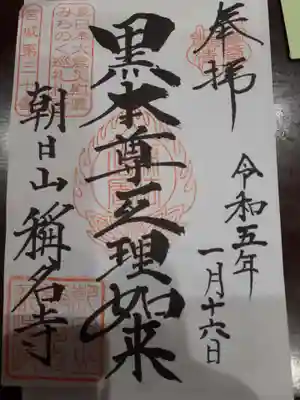 奉拝
令和五年
一月十六日
黒本尊亘理如来
みちのく巡礼
朝日山 稱名寺